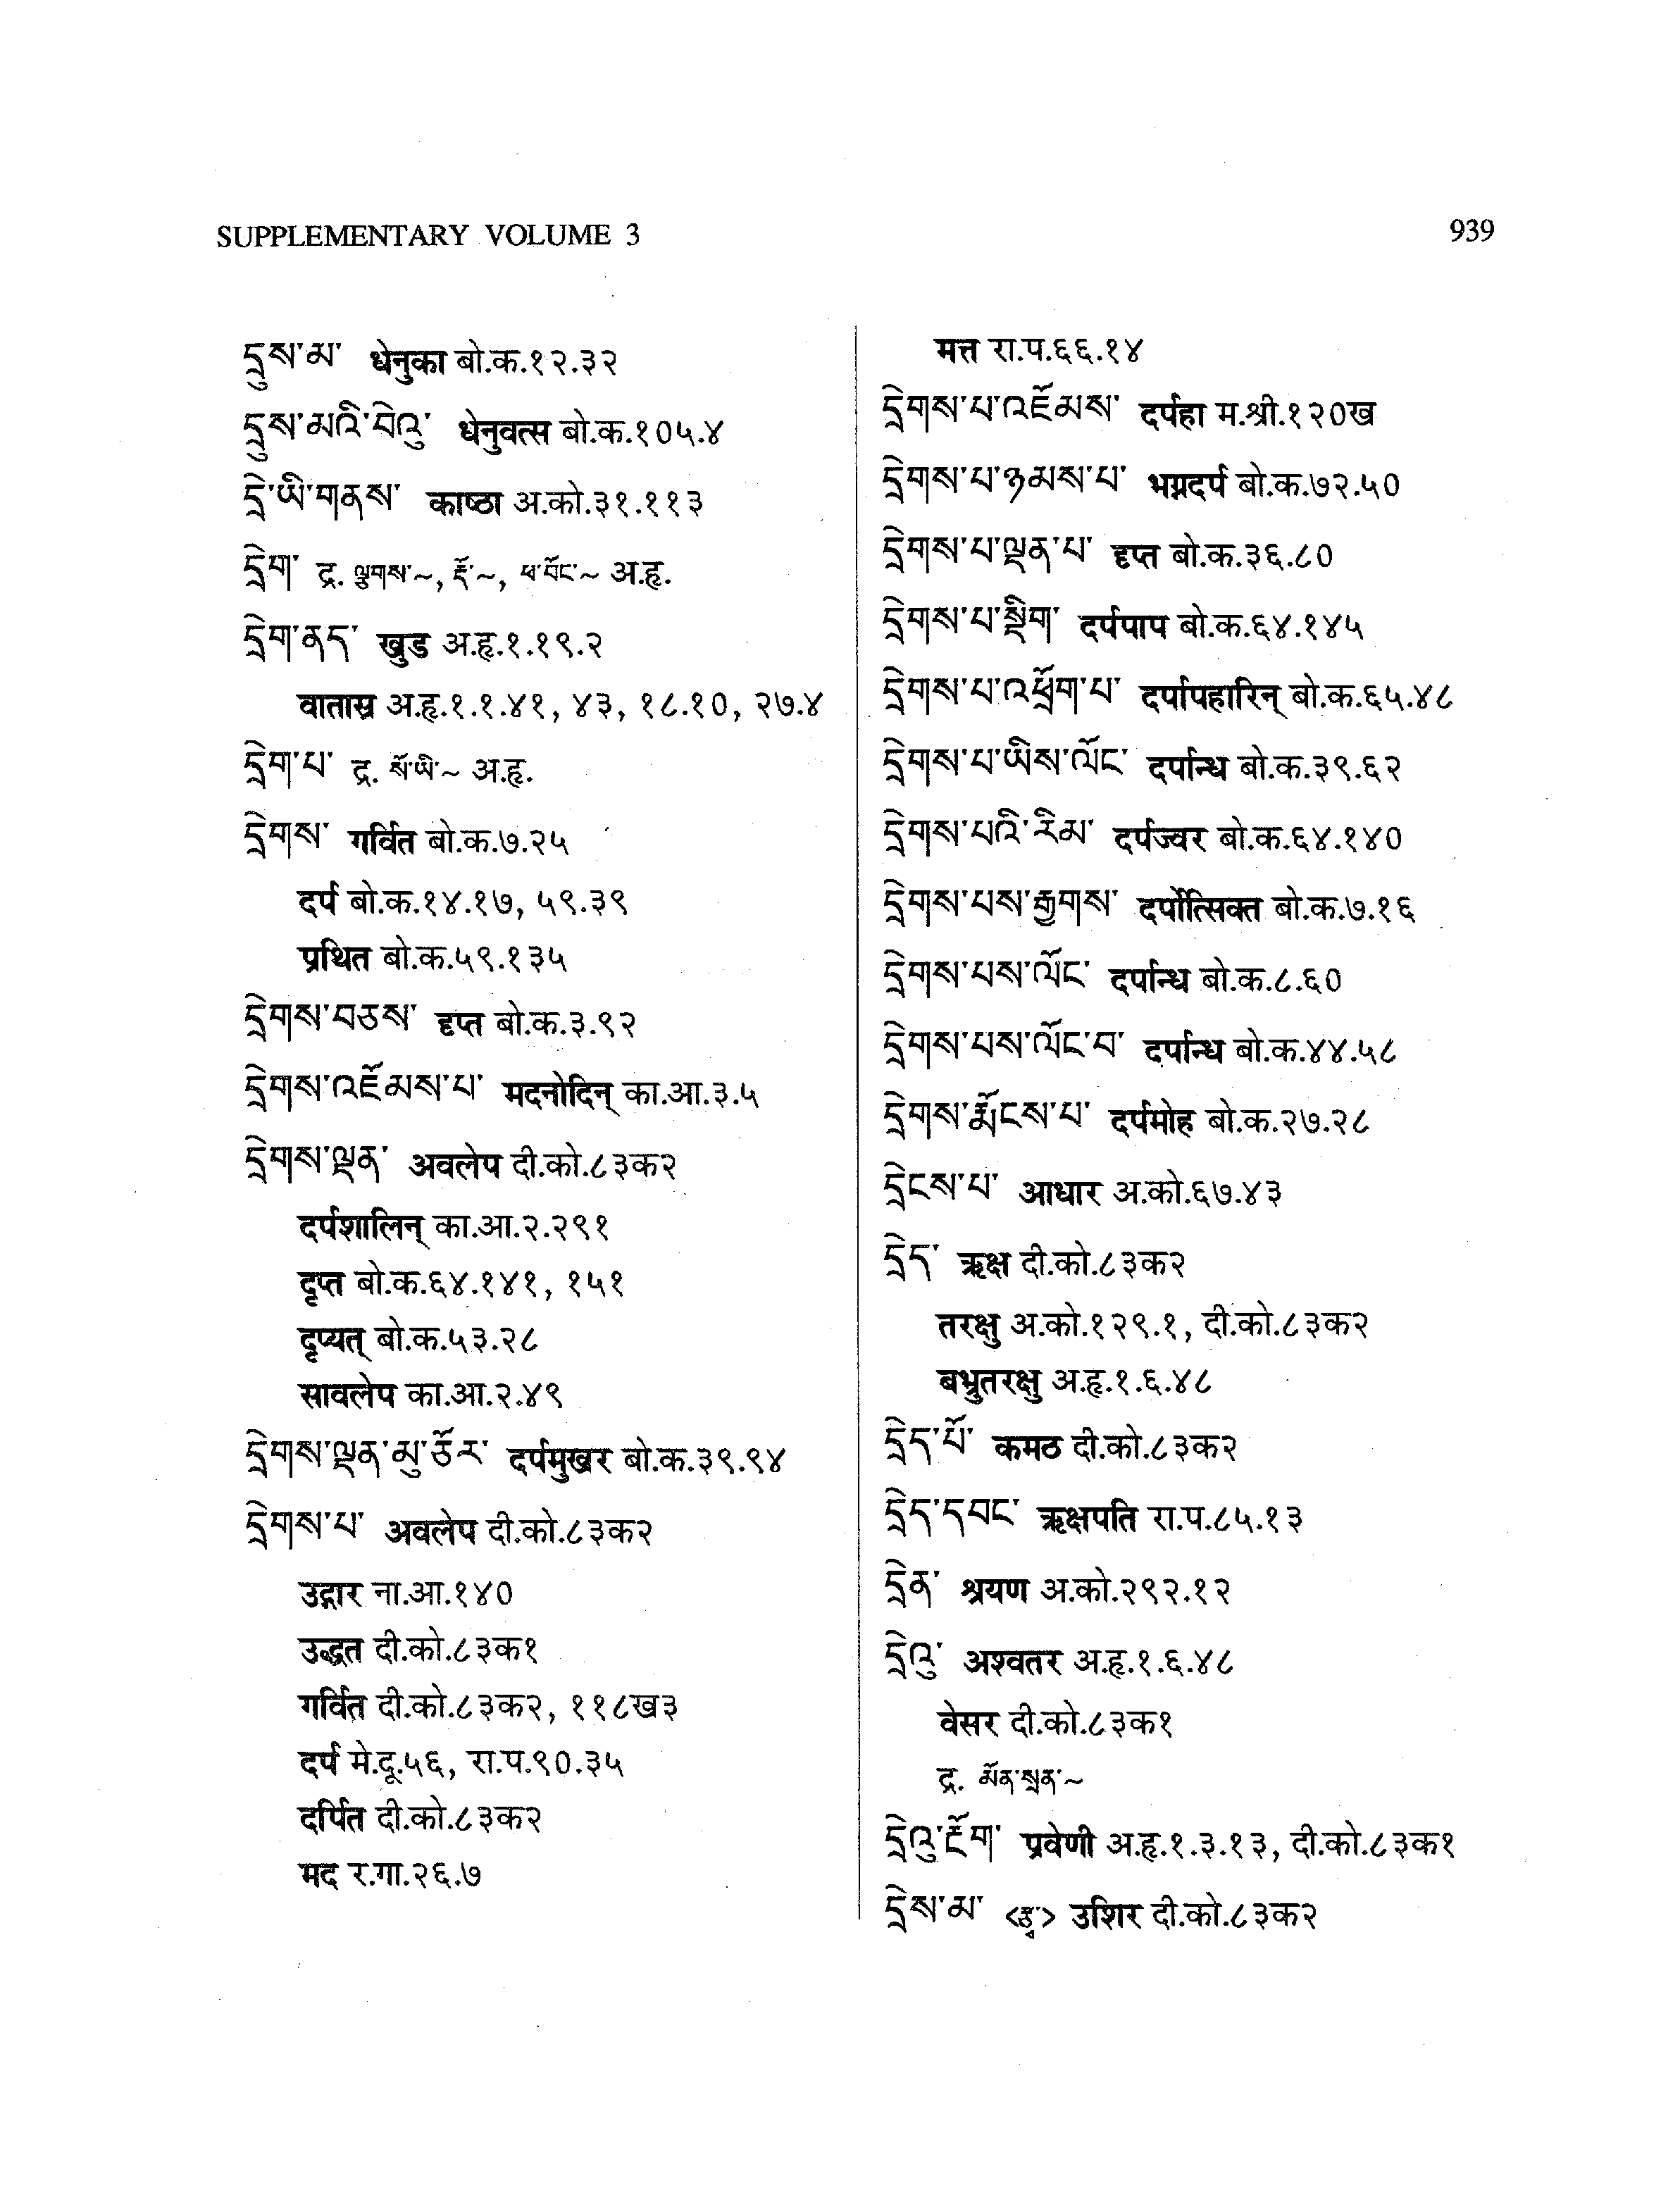 SUPPLEMENTARY VOLUME 3
939
དྲུས་མ་ धेनुका बो.क.१२.३२
དྲུས་མའི་བེའུ་ धेनुवत्स बो.क.१०५.४
དྲེ་ཡི་གནས་ काष्ठा अ.को.३१.११३
དྲེག་ द्र. ལྕགས་~, རྡོ་~, ཕ་བོང་~ अ.हृ.
དྲེག་ནད་ खुड अ.हृ.१.१९.२
वातास्र अ.हृ.१.१.४१, ४३, १८.१०, २७.४
དྲེག་པ་ द्र. སོ་ཡི་~ अ.हृ.
དྲེགས་ गर्वित बो.क.७.२५
दर्प बो.क.१४.१७, ५९.३९
प्रथित बो.क.५९.१३५
དྲེགས་བཅས་ दृप्त बो.क.३.९२
དྲེགས་འཇོམས་པ་ मदनोदिन् का.आ.३.५
དྲེགས་ལྡན་ अवलेप दी.को.८३क२
दर्पशालिन् का.आ.२.२९१
दृप्त बो.क.६४.१४१, १५१
दृप्यत् बो.क.५३.२८
सावलेप का.आ.२.४९
དྲེགས་ལྡན་མུ་ཅོར་ दर्पमुखर बो.क.३९.९४
དྲེགས་པ་ अवलेप दी.को.८३क२
उद्गार ना.आ.१४०
उद्धत दी.को.८३क१
गर्वित दी.को.८३क२, ११८ख३
दर्प मे.दू.५६, रा.प.९०.३५
दर्पित दी.को.८३क२
मद र.गा.२६.७
मत्त रा.प.६६.१४
དྲེགས་པ་འཇོམས་ दर्पहा म.श्री.१२०ख
དྲེགས་པ་ཉམས་པ་ भग्नदर्प बो.क.७२.५०
དྲེགས་པ་ལྡན་པ་ दृप्त बो.क.३६.८०
དྲེགས་པ་སྡིག་ दर्पपाप बो.क.६४.१४५
དྲེགས་པ་འཕྲོག་པ་ दर्पापहारिन् बो.क.६५.४८
དྲེགས་པ་ཡིས་ལོང་ दर्पान्ध बो.क.३९.६२
དྲེགས་པའི་རིམ་ दर्पज्वर बो.क.६४.१४०
དྲེགས་པས་རྒྱགས་ दर्पोत्सिक्त बो.क.७.१६
དྲེགས་པས་ལོང་ दर्पान्ध बो.क.८.६०
དྲེགས་པས་ལོང་བ་ दर्पान्ध बो.क.४४.५८
དྲེགས་རྨོངས་པ་ दर्पमोह बो.क.२७.२८
དྲེངས་པ་ आधार अ.को.६७.४३
དྲེད་ ऋक्ष दी.को.८३क२
तरक्षु अ.को.१२९.१, दी.को.८३क२
बभ्रुतरक्षु अ.हृ.१.६.४८
དྲེད་པོ་ कमठ दी.को.८३क२
དྲེད་དབང་ ऋक्षपति रा.प.८५.१३
དྲེན་ श्रयण अ.को.२९२.१२
དྲེའུ་ अश्वतर अ.हृ.१.६.४८
वेसर दी.को.८३क१
द्र. མོན་སྲན་~
དྲེའུ་རྔོག་ प्रवेणी अ.हृ.१.३.१३, दी.को.८३क१
དྲེས་མ་ <རྩྭ་> उशिर दी.को.८३क२